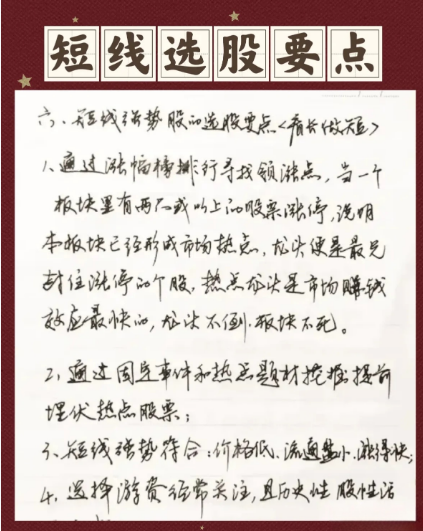 短线选股要点
六、短线强势股的选股要点<看长做短>
1、通过涨幅榜排行寻找领涨点,当一个
板块里有两只或以上的股票涨停,说明
本板块已经形成市场热点,龙头便是最先
封住涨停的个股,热点龙头是市场赚钱
效应最快的,龙头不倒,板块不死。
2、通过固定事件和热点题材挖掘提前
埋伏热点股票;
3、短线强势符合:价格低、流通盘小、涨得快;
4、选择游资经常关注,且历史性股性活